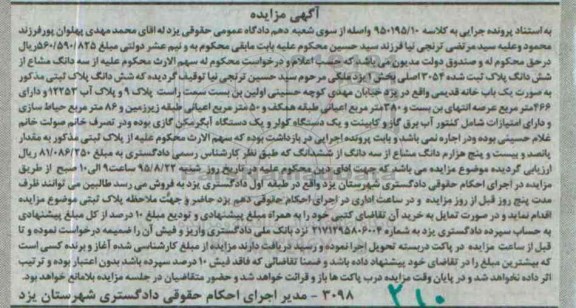 آگهی مزایده
به استناد پرونده اجرایی به کلاسه ۹۵۰۱۹۵/۱۰ واصله از سوی شعبه دهم دادگاه عمومی حقوقی یزد له آقای محمد مهدی پهلوان پورفرزند
محمود وعلیه سید مرتضی ترنجی نیا فرزند سید حسین محکوم علیه بابت مابقی محکوم به و نیم عشر دولتی مبلغ ۵۶۰/۵۹۰/۸۲۵ریال
درحق محکوم له و صندوق دولت مدیون می باشد که حسب اعلام و درخواست محکوم له سهم الارث محکوم علیه از سه دانگ مشاع از
شش دانگ پلاک ثبت شده ۳۰۵۴ اصلی بخش ۱ یزد ملکی مرحوم سید حسین ترنجی نیا توقیف گردیده که شش دانگ پلاک ثبتی مذکور
به صورت یک باب خانه قدیمی واقع در یزد خیابان مهدی کوچه حسینی اولین بن بست سمت راست پلاک ۹ و پلاک آب ۱۲۲۵۳ و دارای
۴۶۶متر مربع عرصه انتهای بن بست و ۳۸۰متر مربع اعیانی طبقه همکف و ۵۰ متر مربع اعیانی طبقه زیرزمین و ۸۶ متر مربع حیاط سازی
و دارای امتیازات شامل کنتور آب برق گاز و کابینت و یک دستگاه کولر و یک دستگاه آبگرمکن گازی بوده ودر تصرف خانم صولت خانم
غلام حسینی بوده ودر اجاره نمی باشد و بابت پرونده اجرایی در بازداشت بوده که سهم الارث محکوم علیه از پلاک ثبتی مذکور به مقدار
پانصد و بیست و پنج هزارم دانگ مشاع از سه دانگ از ششدانگ که طبق نظر کارشناس رسمی دادگستری به مبلغ ۸۱/۰۸۶/۲۵۰ ریال
ارزیابی گردیده موضوع مزایده می باشد که جهت ادای دین محکوم علیه در تاریخ روز شنبه ۹۵/۸/۲۲ ساعت۹ الی۱۰ صبح از طریق
مزایده در اجرای احکام حقوقی دادگستری شهرستان یزد واقع در طبقه اول دادگستری یزد به فروش می رسد طالبین می توانند ظرف
مدت پنج روز قبل از روز مزایده و در ساعت اداری در اجرای احکام حقوقی دهم یزد حاضر و جهت ملاحظه پلاک ثبتی موضوع مزایده
اقدام نماید و در صورت تمایل به خرید آن تقاضای کتبی خود را به همراه مبلغ پیشنهادی و تودیع مبلغ ۱۰ درصد از کل مبلغ پیشنهادی
به حساب سپرده دادگستری یزد به شماره ۲۱۷۱۲۹۵۸۰۶۰۰۴ نزد بانک ملی دادگستری واریز و فیش آن را ضمیمه درخواست نموده و تا
قبل از ساعت مزایده در پاکت دربسته تحویل اجرا نموده و رسید دریافت دارند مزایده از مبلغ کارشناسی شده آغاز و برنده کسی است
که بیشترین مبلغ را در تقاضای خود پیشنهاد داده باشد و ضمنا تقاضائی که فاقد فیش ۱۰ درصد سپرده باشد بدون اعتبار بوده و ترتیب
اثر داده نخواهد شد و در پایان وقت مزایده درب پاکت ها باز و قرائت خواهد شد و حضور متقاضیان در جلسه مزایده بلامانع خواهد بود.
۳۰۹۸ - مدیر اجرای احکام حقوقی دادگستری شهرستان یزد
۲۱۰